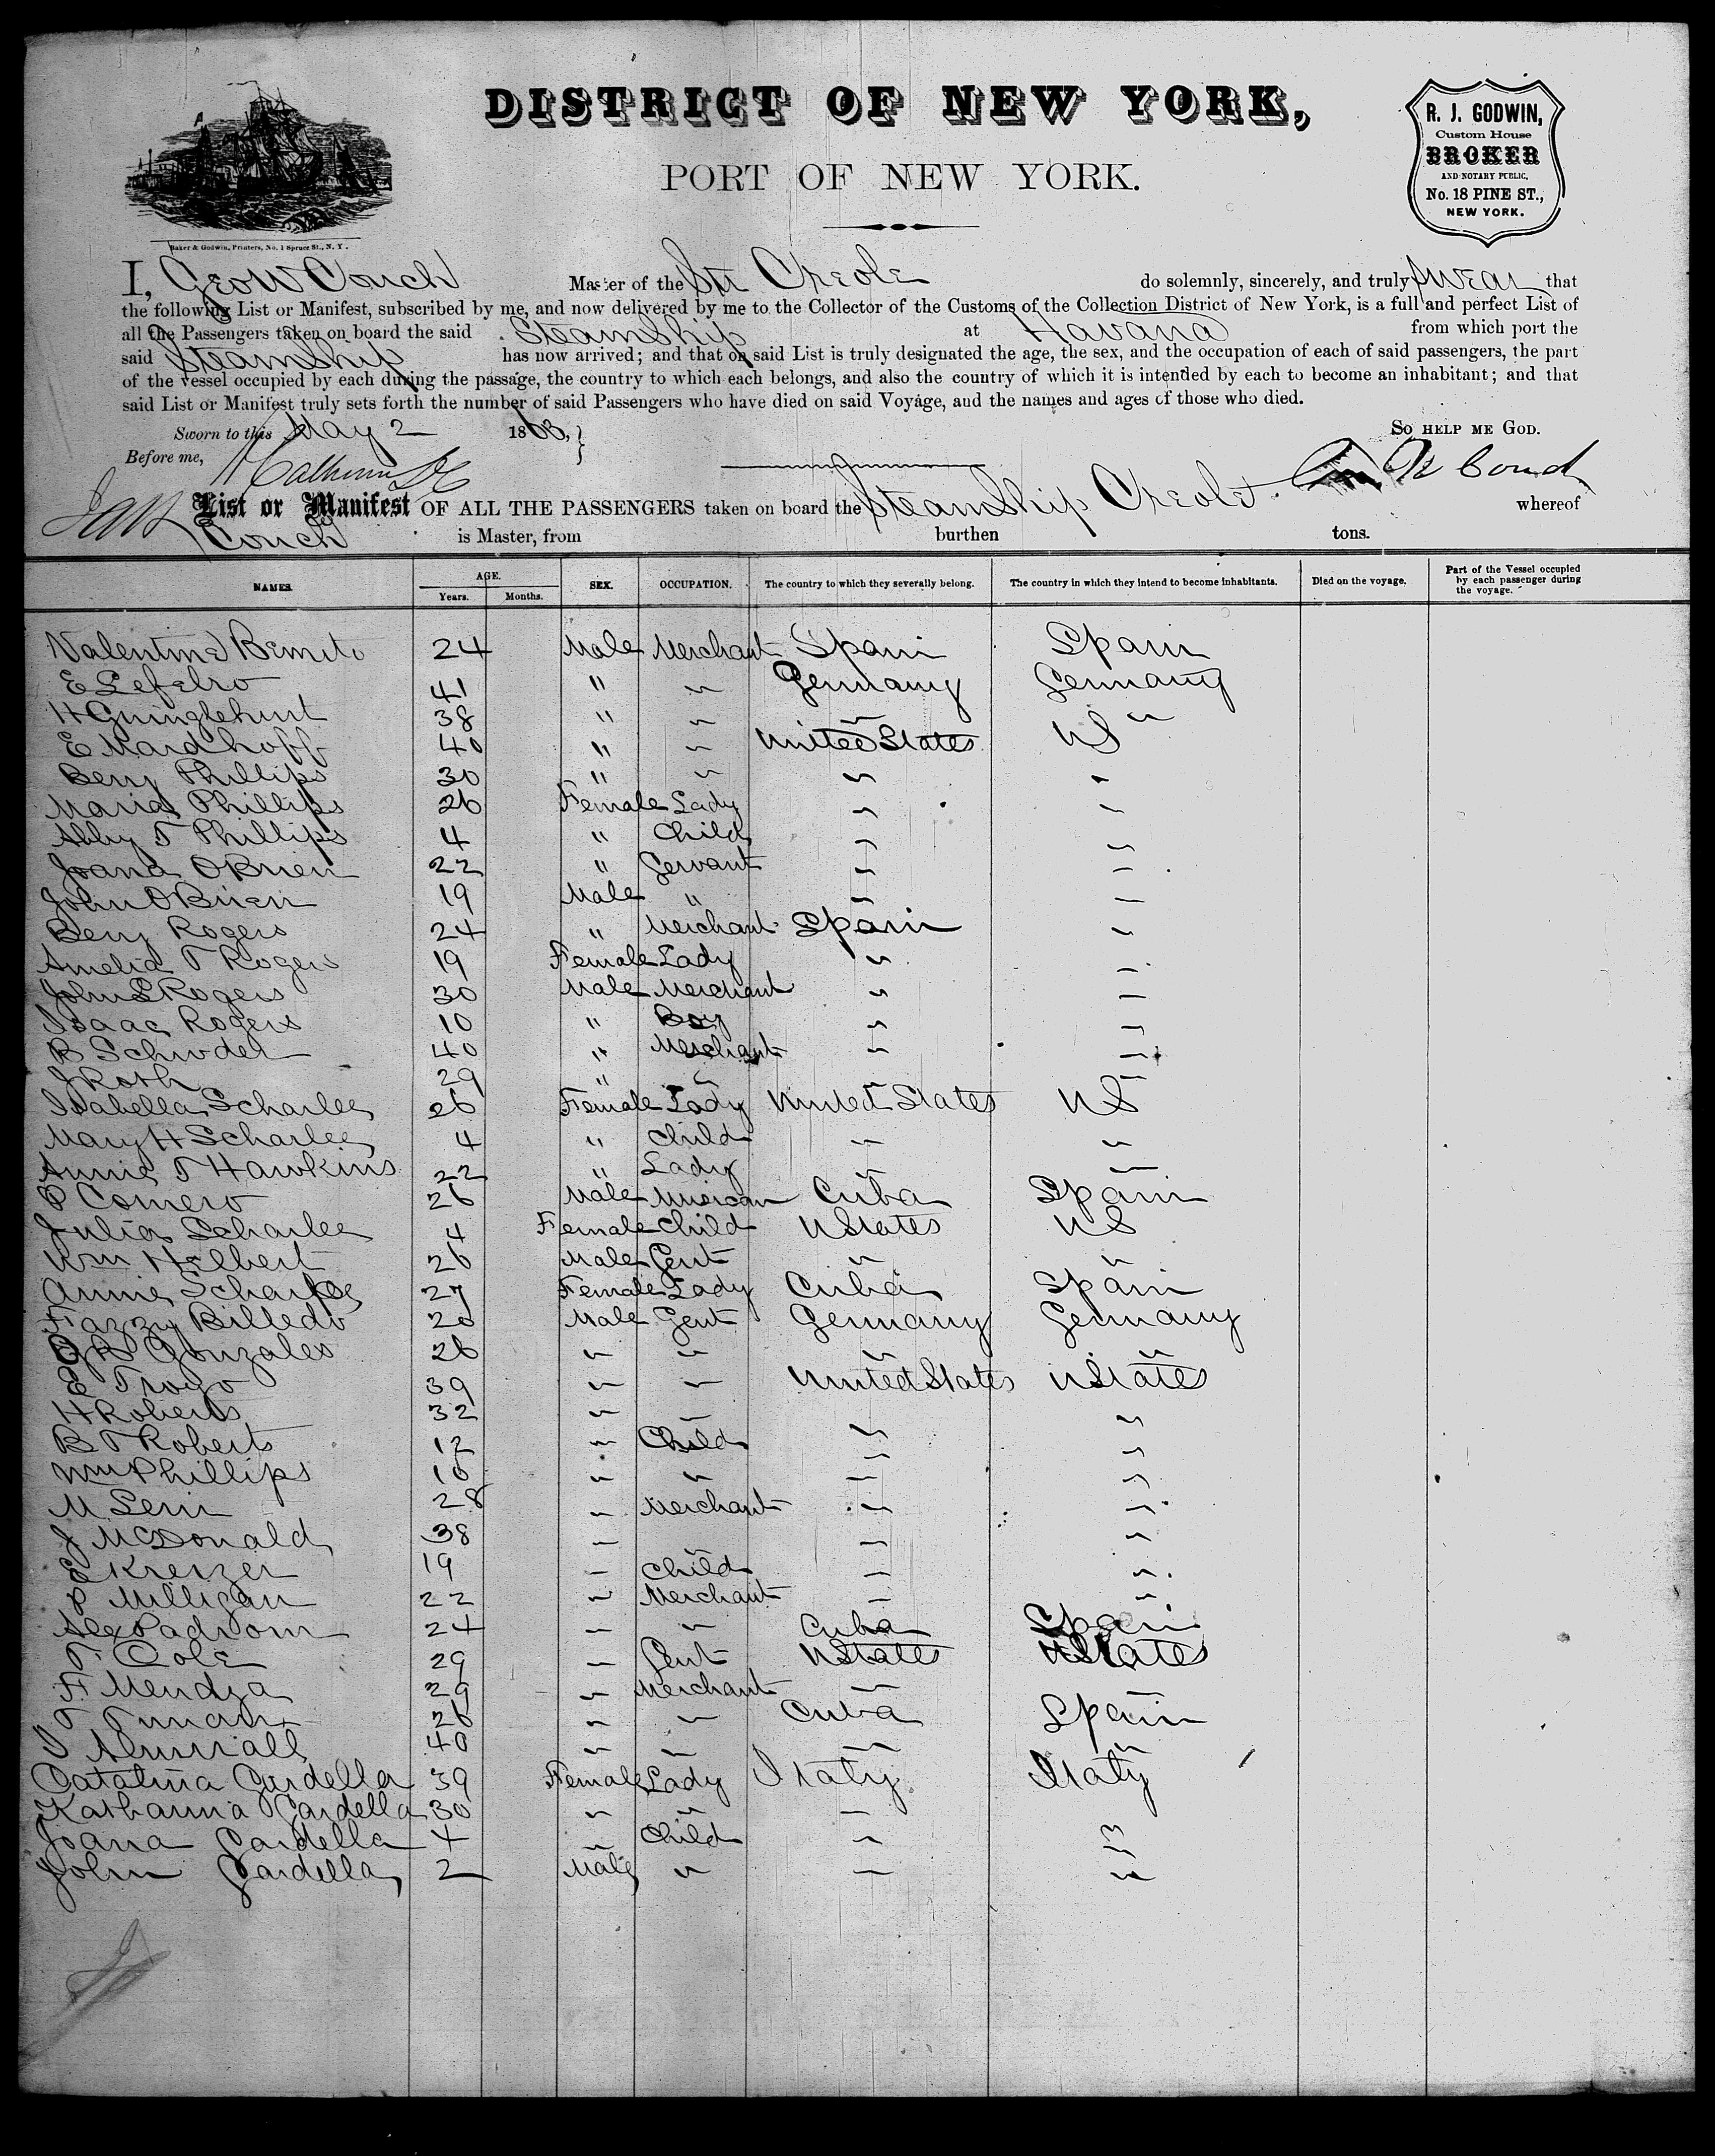 DISTRICT OF NEW YORK,
PORT OF NEW YORK.
R. J. GODWIN,
Custom House
BROKER
AND NOTARY PUBLIC,
No. 18 PINE ST.,
NEW YORK.
Baker & Godwin, Printers, No. 1 Spruce St., N. Y.
I, Geo W Couch Master of the Str Creole do solemnly, sincerely, and truly swear that
the following List or Manifest, subscribed by me, and now delivered by me to the Collector of the Customs of the Collection District of New York, is a full and perfect List of
all the Passengers taken on board the said Steamship at Havana from which port the
said Steamship has now arrived; and that on said List is truly designated the age, the sex, and the occupation of each of said passengers, the part
of the vessel occupied by each during the passage, the country to which each belongs, and also the country of which it is intended by each to become an inhabitant; and that
said List or Manifest truly sets forth the number of said Passengers who have died on said Voyage, and the names and ages of those who died.
Sworn to this May 2 1863, SO HELP ME GOD.
Before me, Calhoun
List or Manifest OF ALL THE PASSENGERS taken on board the Steamship Creole whereof
Couch is Master, from burthen tons.
NAMES. AGE. Years. Months. SEX. OCCUPATION. The country to which they severally belong. The country in which they intend to become inhabitants. Died on the voyage. Part of the Vessel occupied by each passenger during the voyage.
Valentine Benito 24 Male Merchant Spain Spain
E 41 " " Germany Germany
H 38 " " " "
E Mardhoff 40 " " United States US
Benj Phillips 30 " " " "
Maria Phillips 26 Female Lady " "
Abby T Phillips 4 " Child " "
Joana OBrien 22 " Servant " "
John OBrien 19 Male " " "
Benj Rogers 24 " Merchant Spain "
Amelia T Rogers 19 Female Lady " "
John S Rogers 30 Male Merchant " "
Isaac Rogers 10 " Boy " "
B Schroder 40 " Merchant " "
J Roth 29 " " " "
Isabella Scharlee 26 Female Lady United States US
Mary H Scharlee 4 " Child " "
Annie T Hawkins 22 " Lady " "
P Comero 26 Male Musician Cuba Spain
Julia Scharlee 4 Female Child UStates US
Wm Helbert 26 Male Gent " "
Annie 27 Female Lady Cuba Spain
Billedo 20 Male Gent Germany Germany
Gonzales 26 " " " "
E Troyo 39 " " United States UStates
H Roberts 32 " " " "
B T Roberts 12 " Child " "
Wm Phillips 10 " " " "
M Serin 28 " Merchant " "
J McDonald 38 " " " "
E Kreizer 19 " Child " "
P Milligan 22 " Merchant " "
Alex Padrom 24 " " Cuba Spain
T Cole 29 " Gent UStates UStates
F Mendza 29 " Merchant " "
T 26 " " Cuba Spain
40 " " " "
Catalina Gardella 39 Female Lady Italy Italy
Kathanna Gardella 30 " " " "
Joana Gardella 4 " Child " "
John Gardella 2 Male " " "